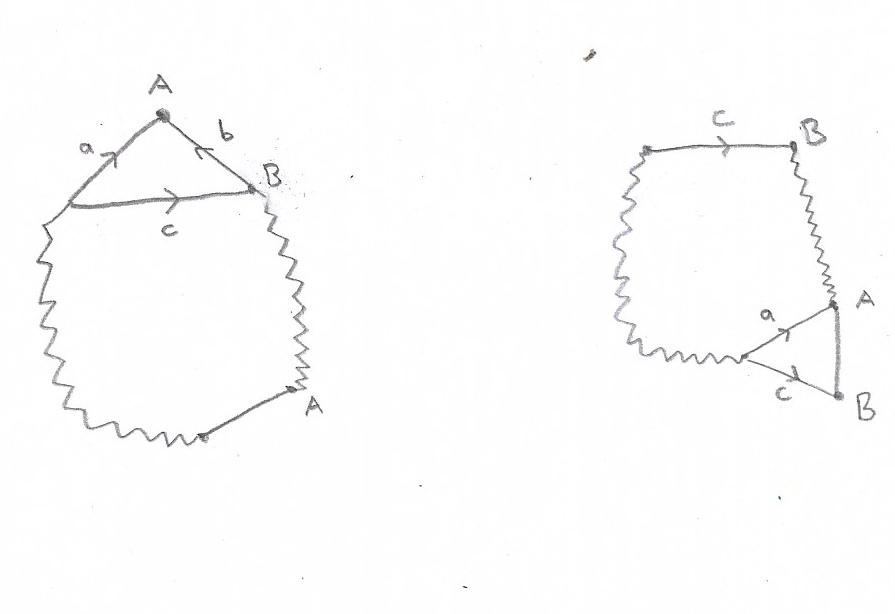 A
a
b
B
c
A
c
B
A
a
c
B